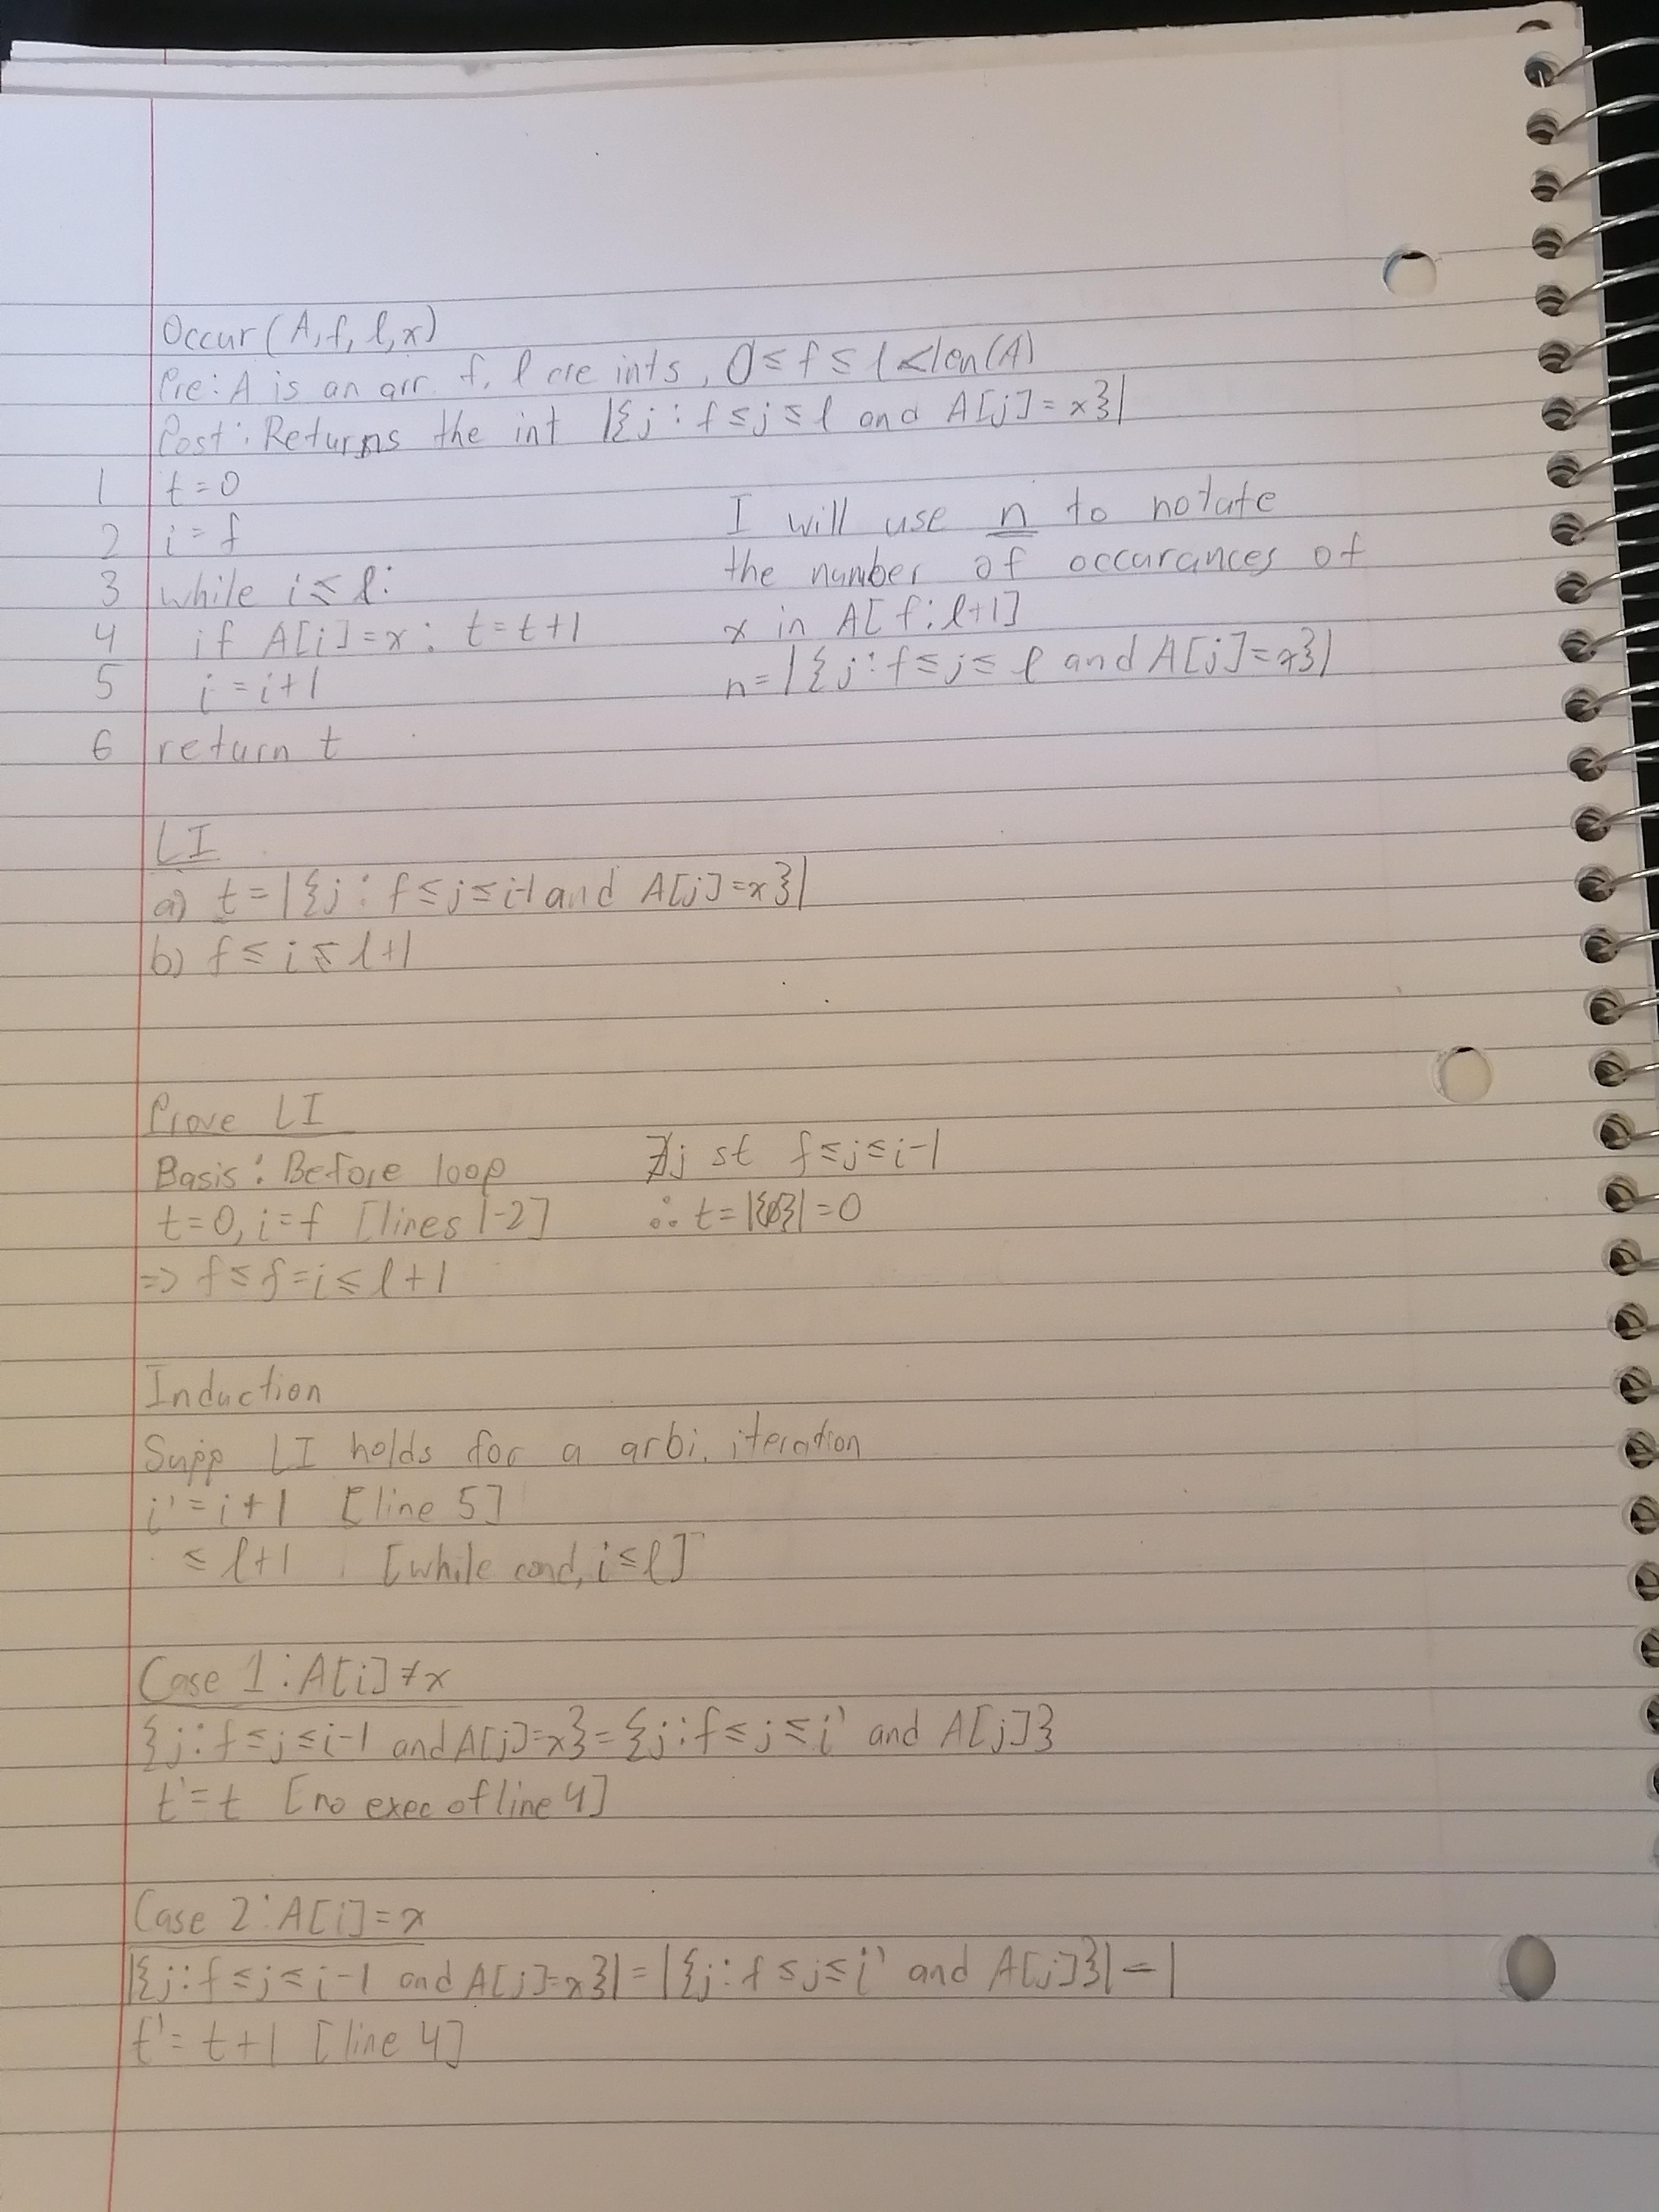 Occur(A, f, l, x)
Pre: A is an arr. f, l are ints, 0 ≤ f ≤ l < len(A)
Post: Returns the int |{j : f ≤ j ≤ l and A[j] = x}|
1 t = 0
2 i = f
3 while i ≤ l:
4 if A[i] = x: t = t+1
5 i = i+1
6 return t
I will use n to notate
the number of occurances of
x in A[f:l+1]
n = |{j : f ≤ j ≤ l and A[j] = x}|
LI
a) t = |{j : f ≤ j ≤ i-1 and A[j] = x}|
b) f ≤ i ≤ l+1
Prove LI
Basis: Before loop
t = 0, i = f [lines 1-2]
=> f ≤ f = i ≤ l+1
∄j st f ≤ j ≤ i-1
∴ t = |{∅}| = 0
Induction
Supp LI holds for a arbi. iteration
i' = i+1 [line 5]
≤ l+1 [while cond, i ≤ l]
Case 1: A[i] ≠ x
{j : f ≤ j ≤ i-1 and A[j] = x} = {j : f ≤ j ≤ i' and A[j]}
t' = t [no exec of line 4]
Case 2: A[i] = x
|{j : f ≤ j ≤ i-1 and A[j] = x}| = |{j : f ≤ j ≤ i' and A[j]}| - 1
t' = t+1 [line 4]